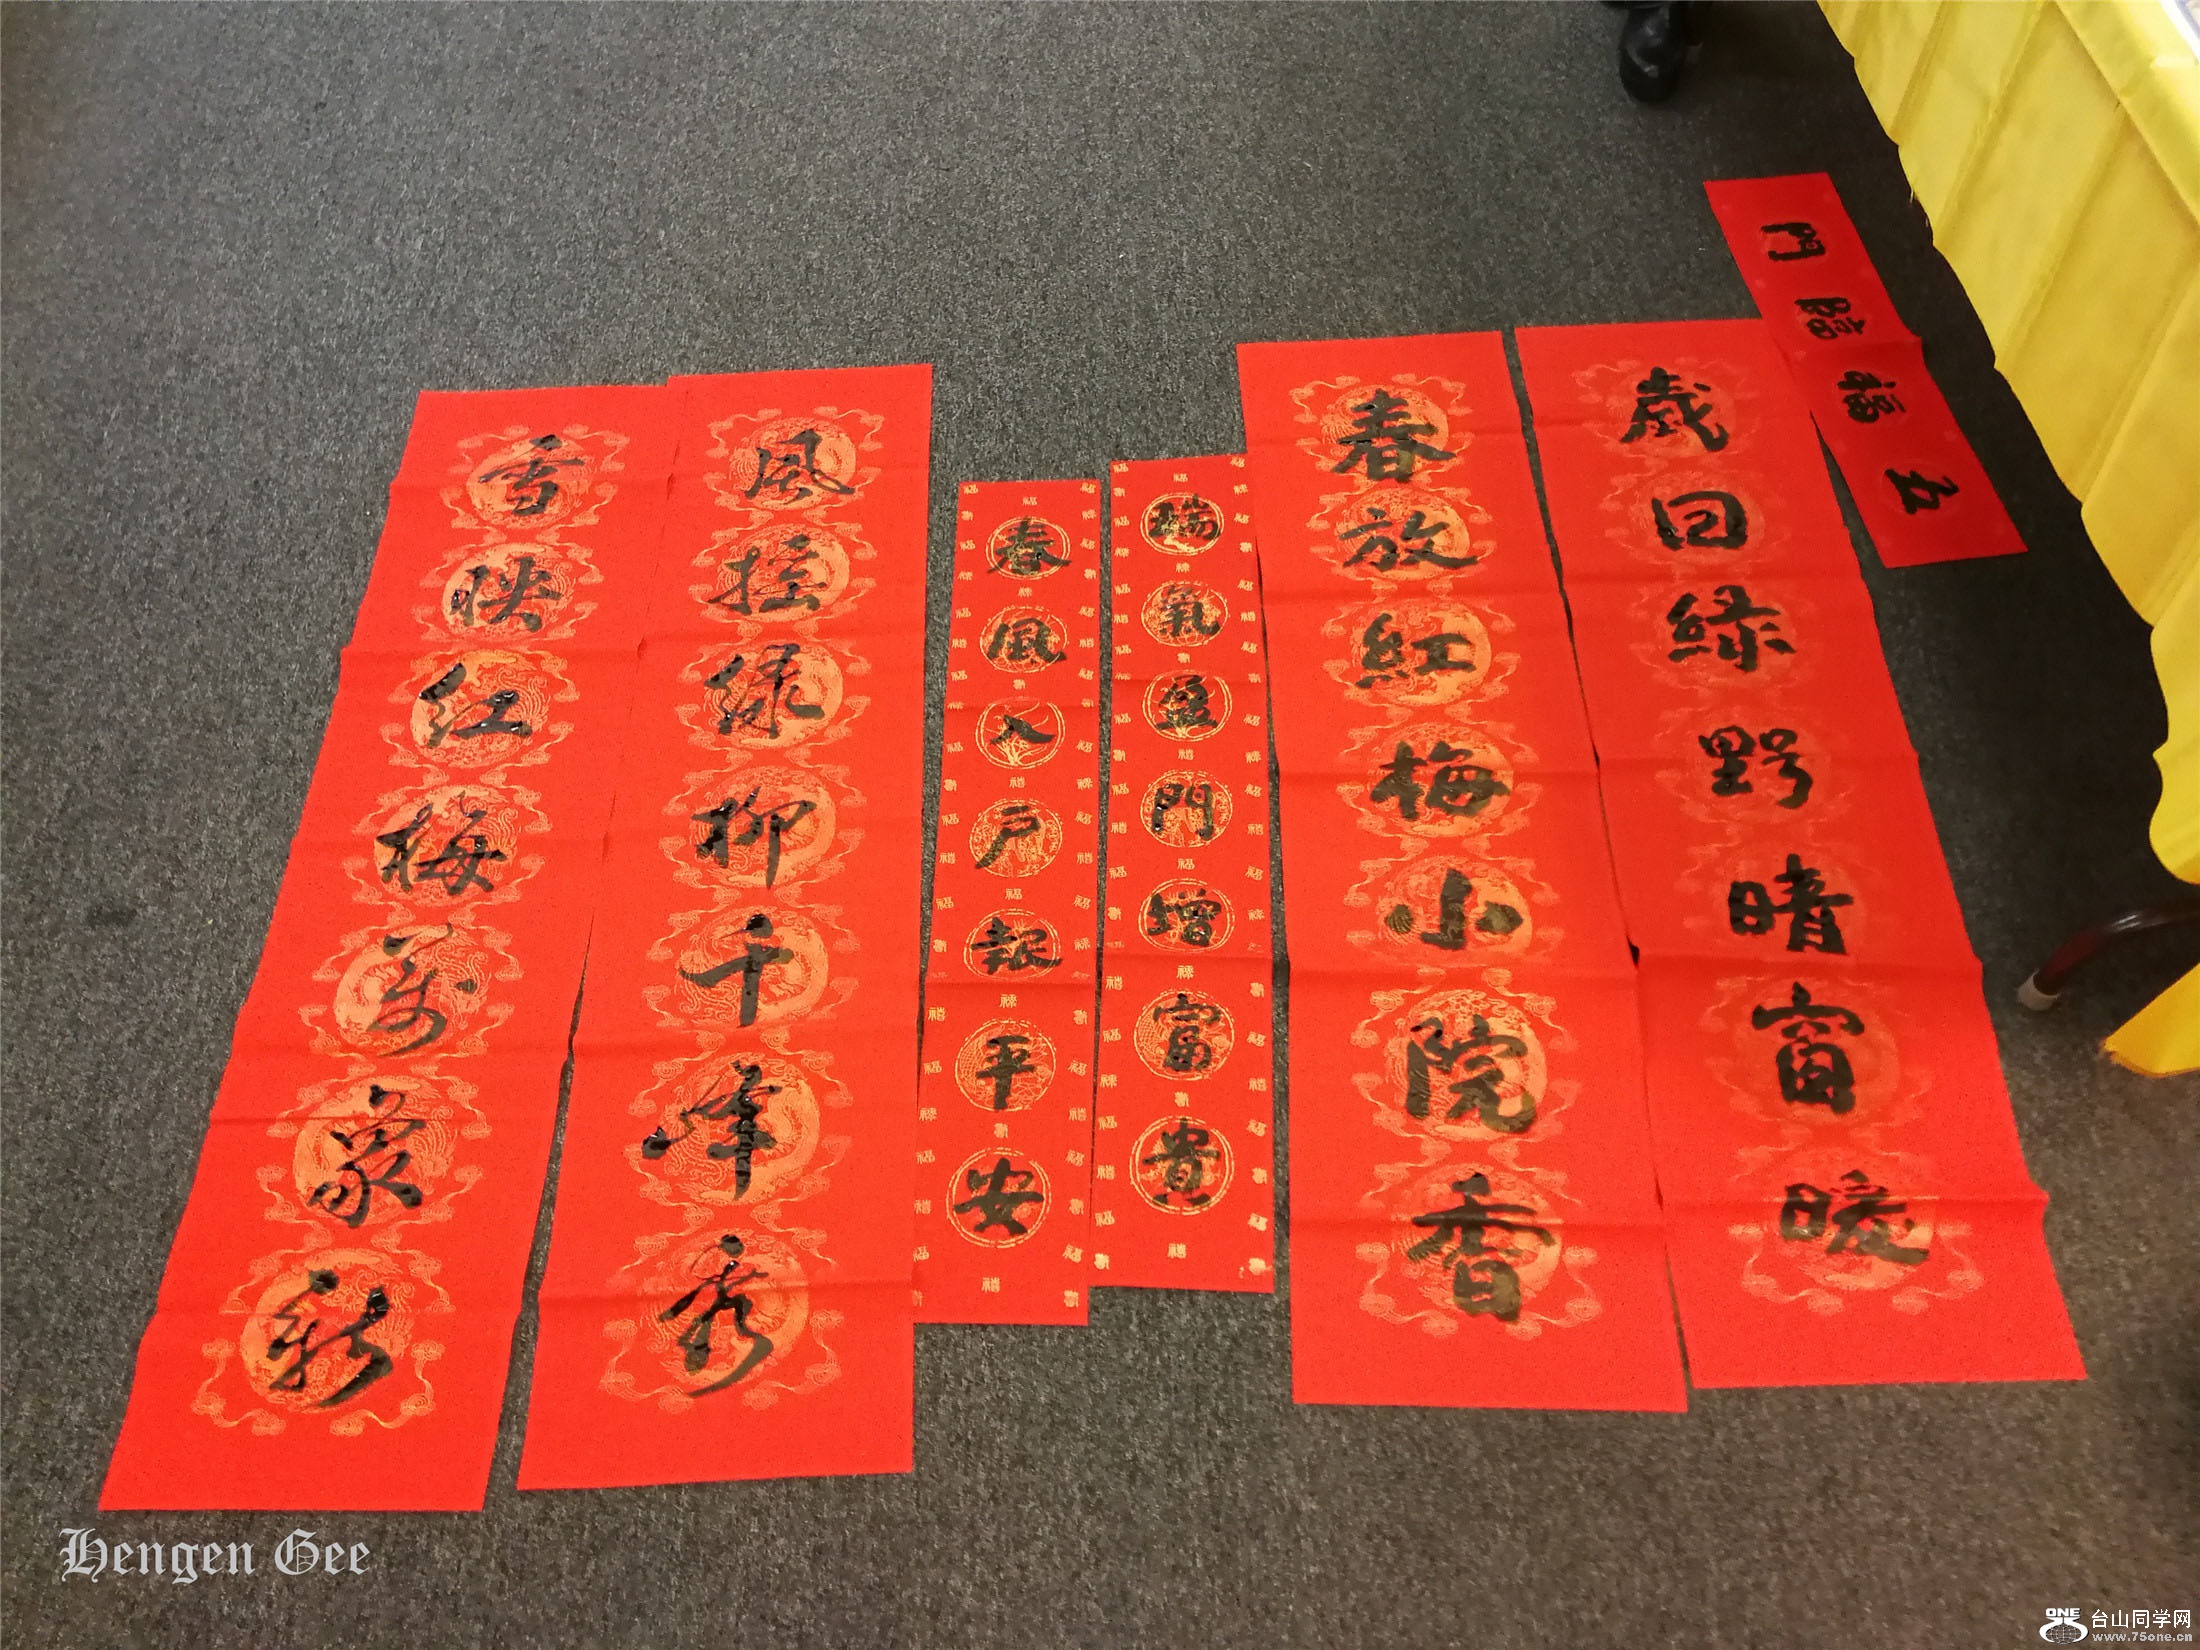 五福臨門
歲回綠野晴窗暖
春放紅梅小院香
瑞氣盈門增富貴
春風入戶報平安
風搖綠柳千峰秀
雪映紅梅萬象新
Hengen Gee
ONE 台山同学网
www.75one.cn